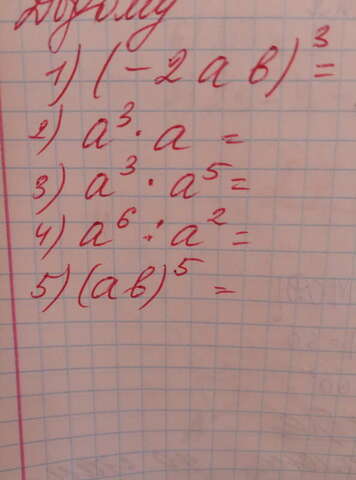 Додому
1) (-2ab)³ =
2) a³ · a =
3) a³ · a⁵ =
4) a⁶ : a² =
5) (ab)⁵ =